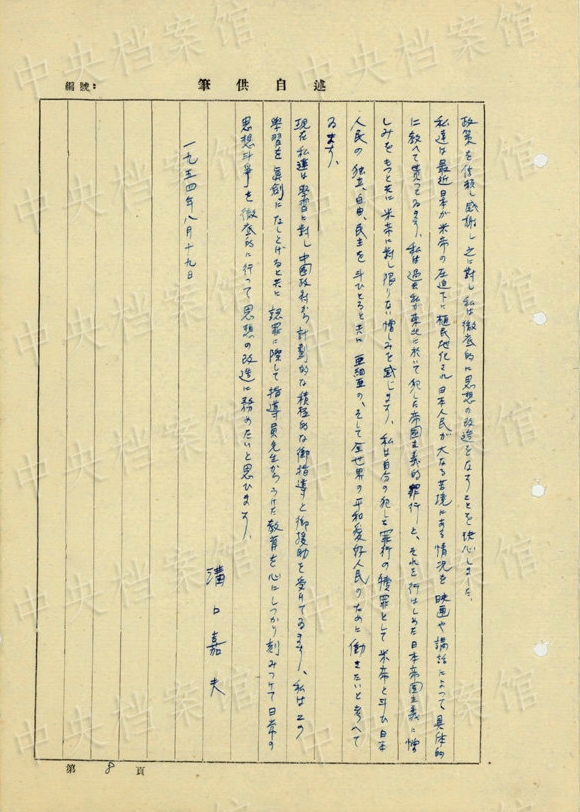 編號：
筆供自述
政策を信頼し感謝し之に対し私は徹底的に思想の改造をなすことを決心しました。
私達は最近日本が米帝の圧迫下に植民地化され日本人民が大なる苦境にある情況を映画や講話によって具体的
に教へて貰ってゐます。私は過去私が東北に於いて犯した帝国主義的罪行と、それを行はしめた日本帝国主義に憎
しみをもつと共に米帝に対し限りない憎しみを感じます。私は自分の犯した罪行の贖罪として米帝と斗ひ日本
人民の独立、自由、民主を斗ひとると共に亜細亜の、そして全世界の平和愛好人民のために働きたいと考へて
ゐます。
現在私達は学習に対し中国政府から計劃的な積極的な御指導と御援助を受けてゐます。私はこの
学習を真剣になしとげると共に認罪に際して指導員先生からうけた教育を心にしっかり刻みつけて日常の
思想斗争を徹底的に行って思想の改造に務めたいと思ひます。
溝口嘉夫
一九五四年八月十九日
第 8 頁
中央档案馆